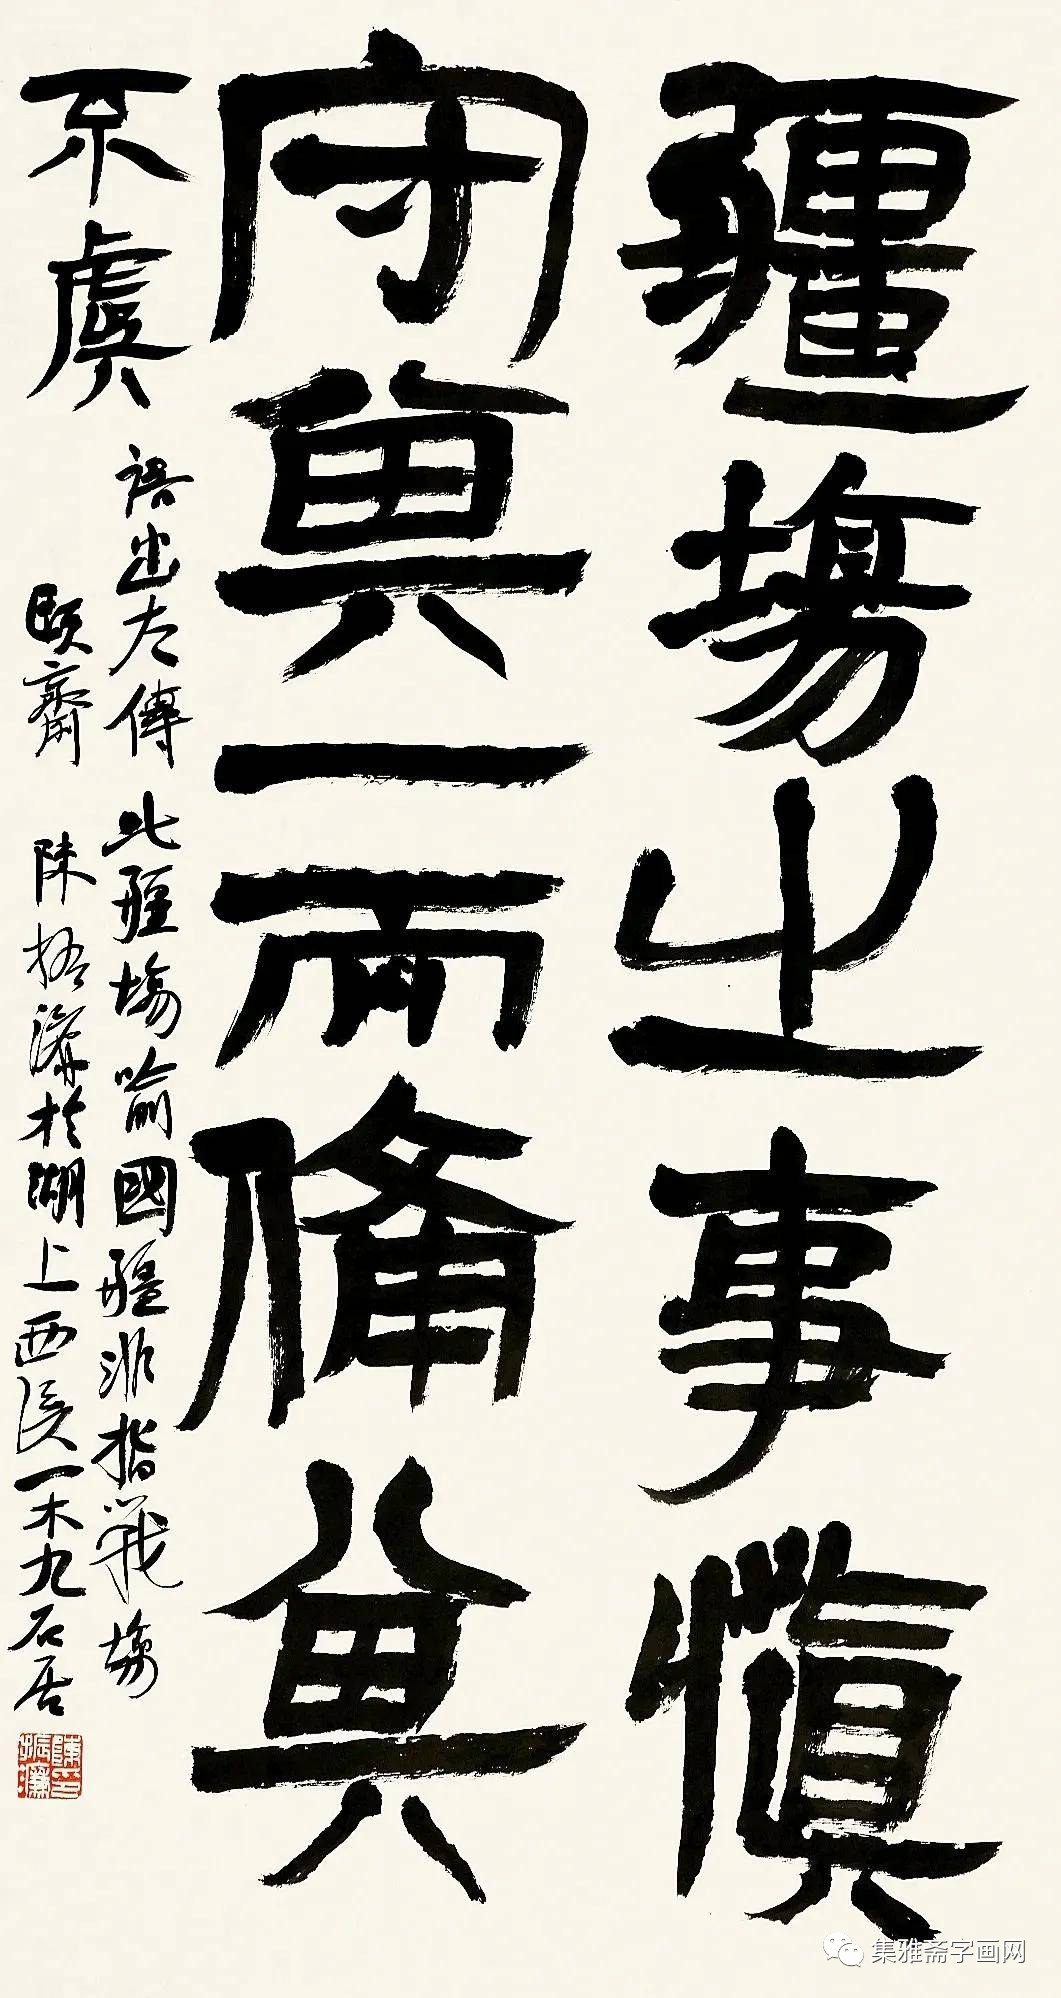 疆塲之事慎
守其一而備其
不虞
語出左傳 此疆塲喻國疆非指戰塲
頤齋 陳振濂於湖上西溪一木九石居
陳印振濂
集雅斋字画网